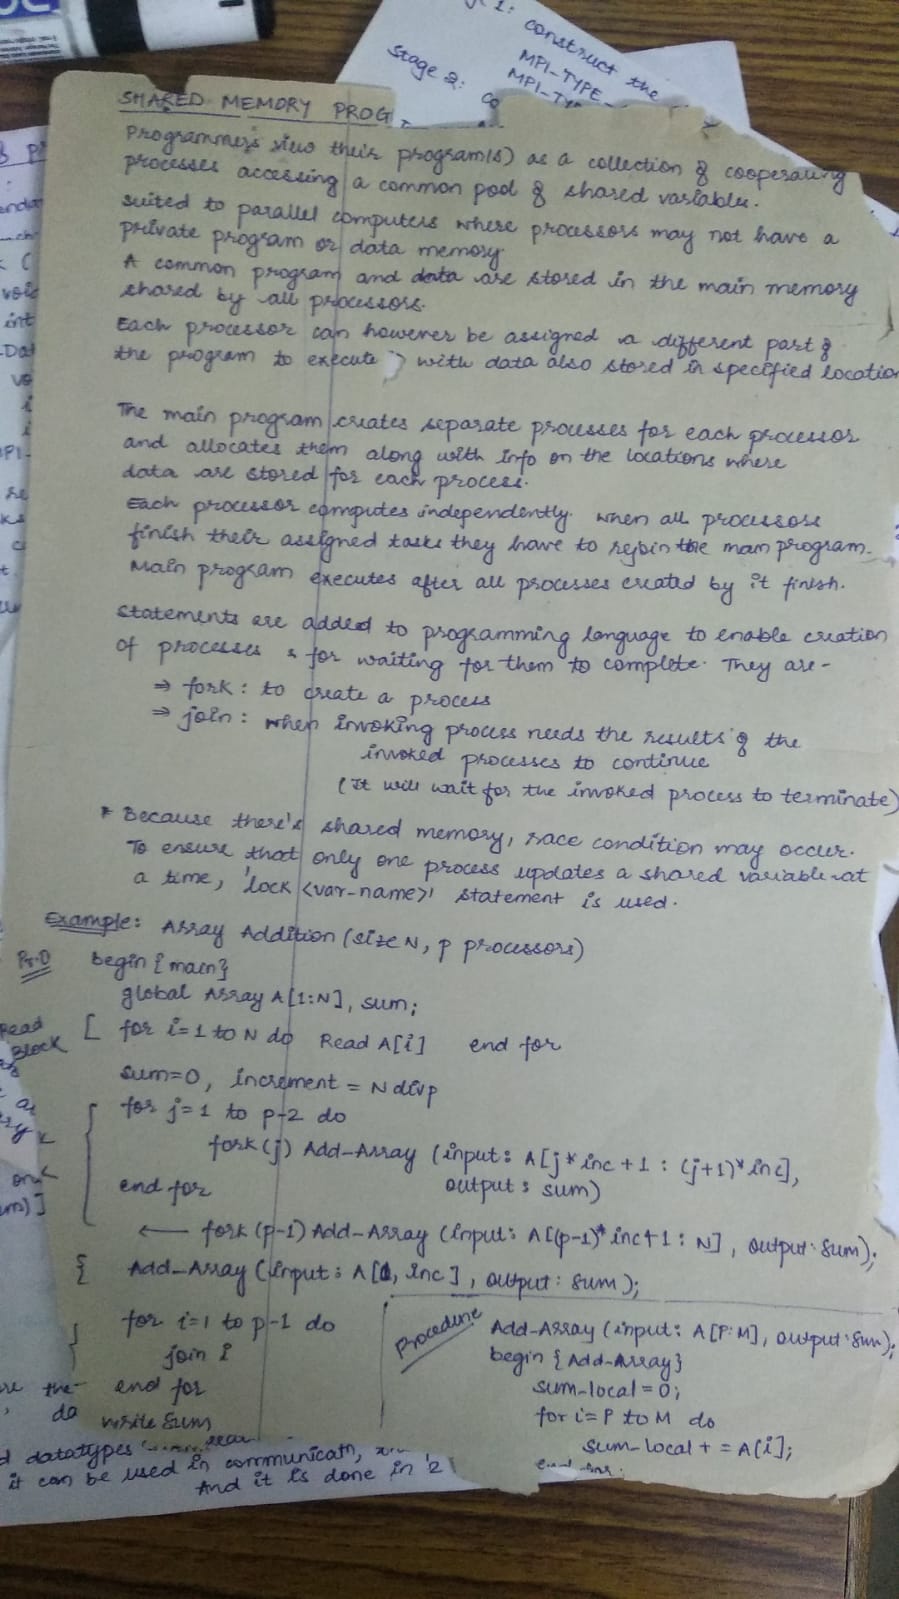 1: construct the
MPI-TYPE-
Stage 2:
MPI-TY
SHARED MEMORY PROG
Programmers view their program(s) as a collection of cooperating
processes accessing a common pool of shared variables.
suited to parallel computers where processors may not have a
private program or data memory.
A common program and data are stored in the main memory
shared by all processors.
Each processor can however be assigned a different part of
the program to execute with data also stored in specified location
The main program creates separate processes for each processor
and allocates them along with info on the locations where
data are stored for each process.
Each processor computes independently. When all processors
finish their assigned tasks they have to rejoin the main program.
Main program executes after all processes created by it finish.
Statements are added to programming language to enable creation
of processes & for waiting for them to complete. They are -
⇒ fork : to create a process
⇒ join : when invoking process needs the results of the
invoked processes to continue
(It will wait for the invoked process to terminate)
* Because there's shared memory, race condition may occur.
To ensure that only one process updates a shared variable at
a time, 'lock <var-name>' statement is used.
Example: Array Addition (size N, p processors)
Pr.0 begin {main}
global Array A[1:N], sum;
Read [ for i=1 to N do Read A[i] end for
Block
sum=0, increment = N div p
for j=1 to p-2 do
fork(j) Add-Array (input: A[j*inc+1 : (j+1)*inc],
end for output: sum)
← fork (p-1) Add-Array (input: A[(p-1)*inc+1 : N], output: sum);
{ Add-Array (input: A[1, inc], output: sum);
for i=1 to p-1 do
join i
end for
write sum
Procedure Add-Array (input: A[P:M], output: sum);
begin {Add-Array}
sum-local = 0;
for i=P to M do
sum-local += A[i];
end for.
datatypes
it can be used in
And it is done in 2